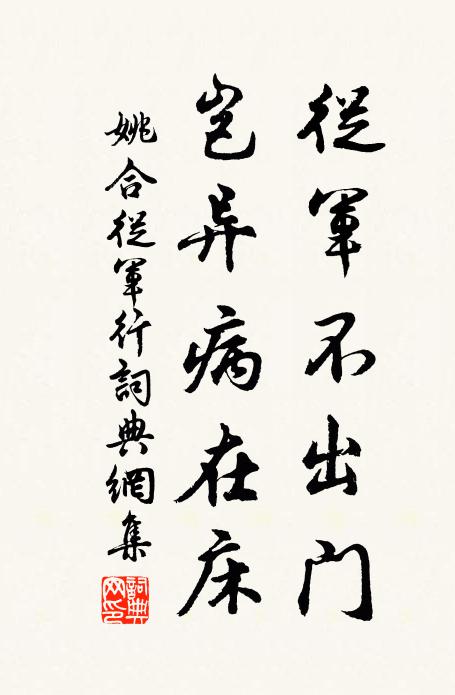 從軍不出門
岂异病在床
姚合從軍行詞典網集
詞典
网印